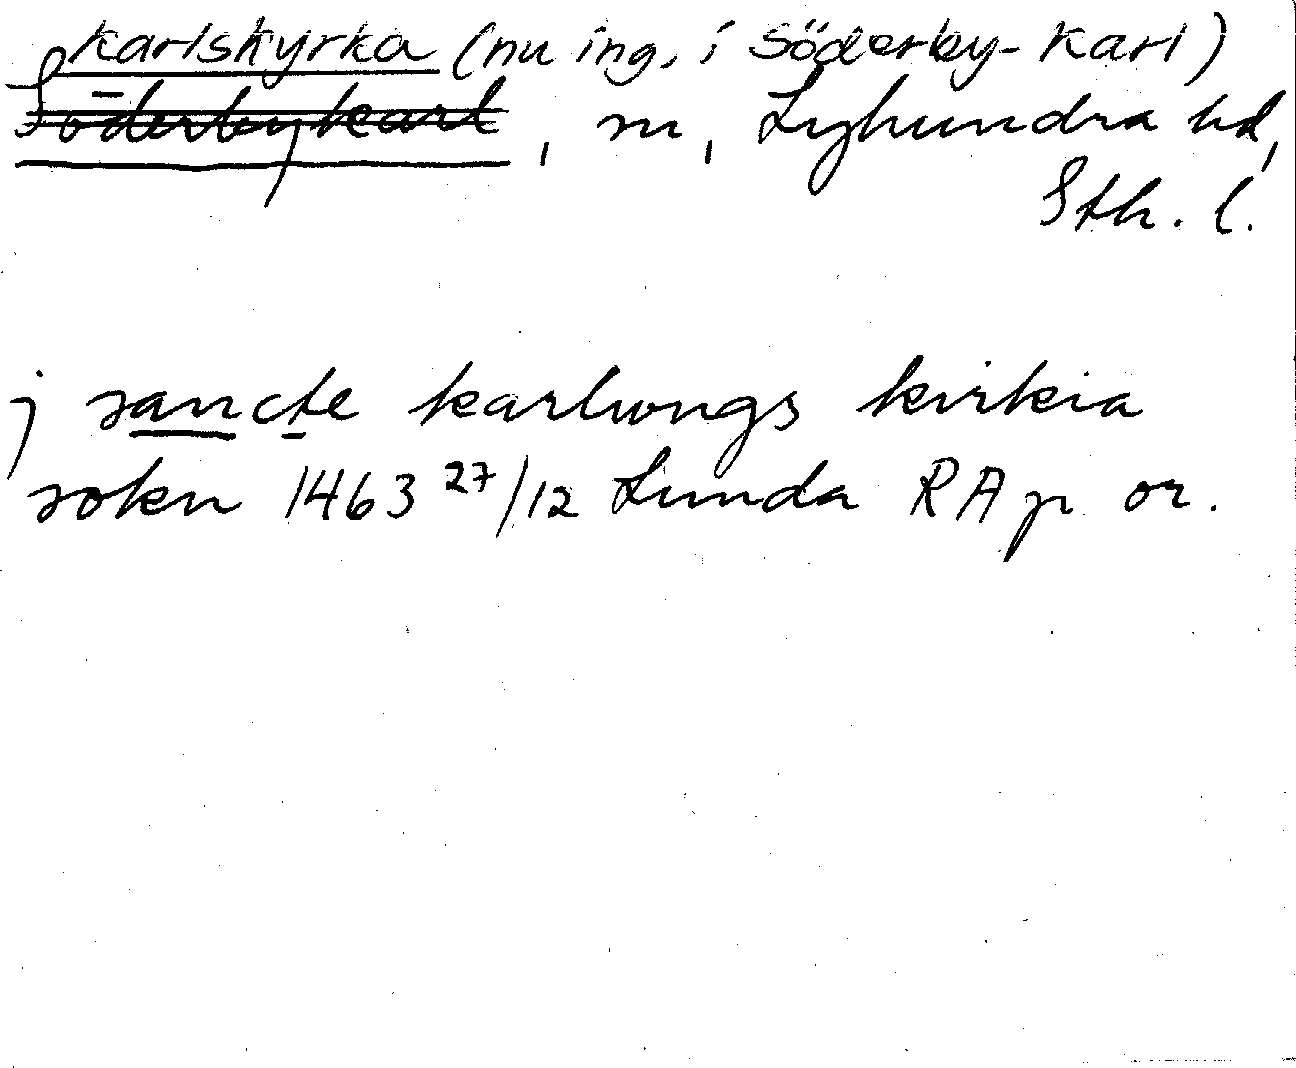 Karlskyrka (nu ing. i Söderby-Karl)
Söderbykarl, sn, Lyhundra hd,
Sth. l.
j sancte karlwngs kirkia
sokn 1463 27/12 Lunda RA p or.